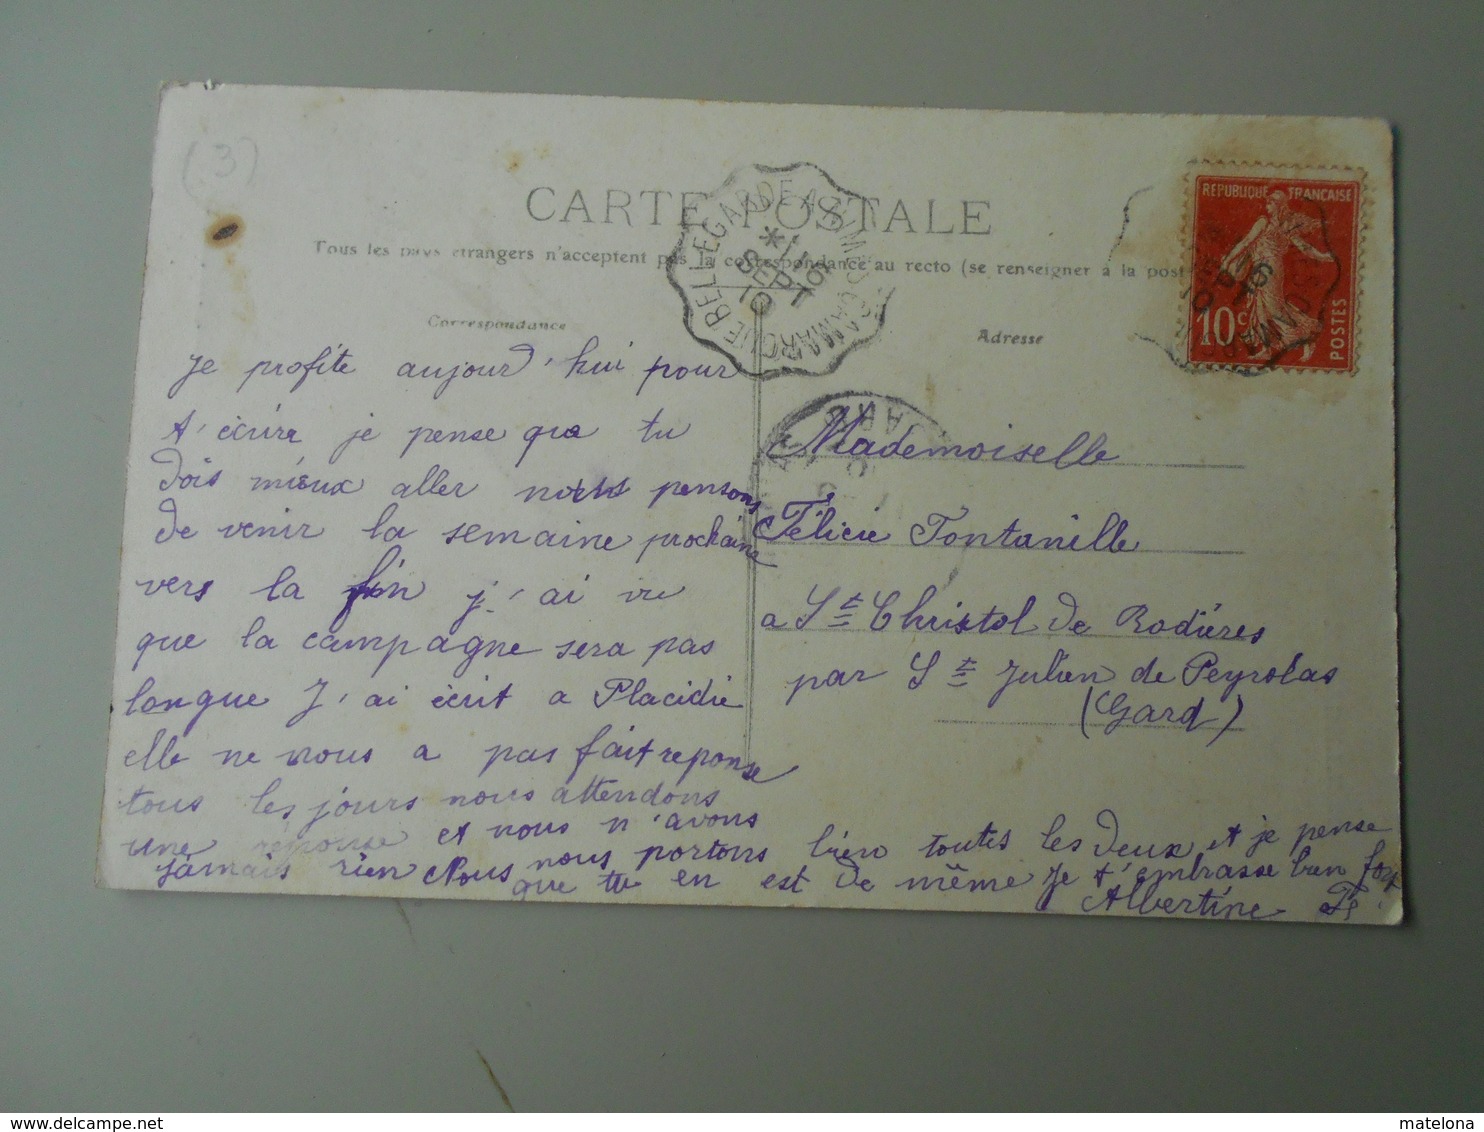 (3)
CARTE POSTALE
Tous les pays étrangers n'acceptent pas la correspondance au recto (se renseigner à la post
Correspondance
Adresse
REPUBLIQUE FRANÇAISE
10 c
POSTES
16
SEPT
10
Je profite aujour'hui pour
t'écrire je pense que tu
dois mieux aller nous pensons
de venir la semaine prochaine
vers la fin j'ai vu
que la campagne sera pas
longue J'ai écrit a Placidie
elle ne nous a pas fait reponse
tous les jours nous attendons
une réponse et nous n'avons
jamais rien Nous nous portons bien toutes les deux et je pense
que tu en est de même Je t'embrasse bien fort
Albertine F
Mademoiselle
Félicie Fontanille
a St Christol de Rodières
par St Julien de Peyrolas
(Gard)
matelona